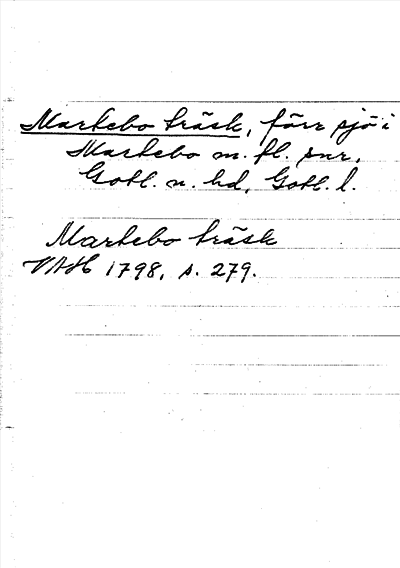 Martebo träsk, förr sjö i
Martebo m. fl. snr,
Gotl. n. hd, Gotl. l.
Martebo träsk
VAH 1798, s. 279.